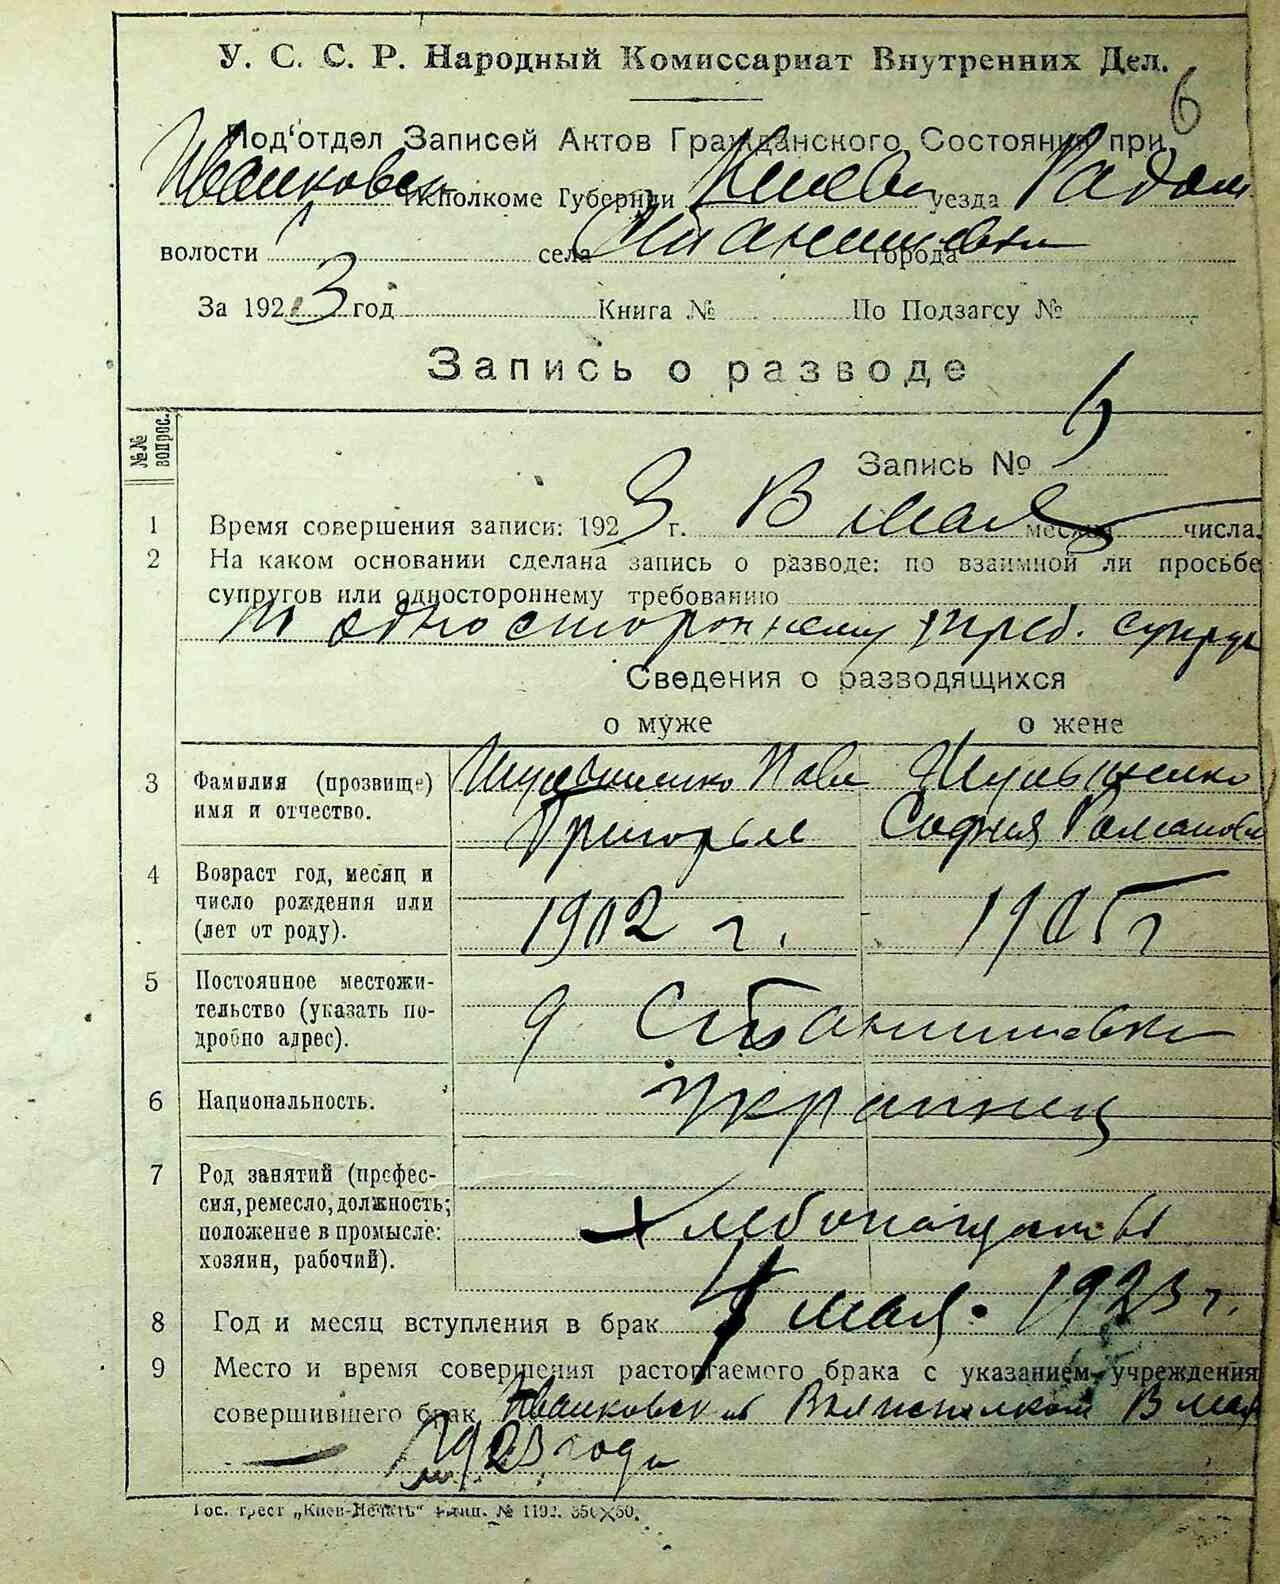 У. С. С. Р. Народный Комиссариат Внутренних Дел.
6
Под'отдел Записей Актов Гражданского Состояния при
Иванковск Исполкоме Губернии Киевск уезда Радом
волости села города Станишовки
За 1923 год Книга № По Подзагсу №
Запись о разводе
№№ вопрос.
Запись №
1 Время совершения записи: 1923 г. В мая месяца числа.
2 На каком основании сделана запись о разводе: по взаимной ли просьбе
супругов или одностороннему требованию
по одностороннему треб. супруг
Сведения о разводящихся
о муже о жене
3 Фамилия (прозвище)
имя и отчество.
Павел
Григорьев
София Романовн
4 Возраст год, месяц и
число рождения или
(лет от роду).
1902 г. 1905 г
5 Постоянное местожи-
тельство (указать по-
дробно адрес).
Станишовка
6 Национальность.
Украинец
7 Род занятий (профес-
сия, ремесло, должность;
положение в промысле:
хозяин, рабочий).
Хлебопашцы
8 Год и месяц вступления в брак мая. 1923 г.
9 Место и время совершения расторгаемого брака с указанием учреждения
совершившего брак Иванковским Волисполком В мая
1923 года
Гос. трест „Киев-Печать“ № 1192. 350×50.